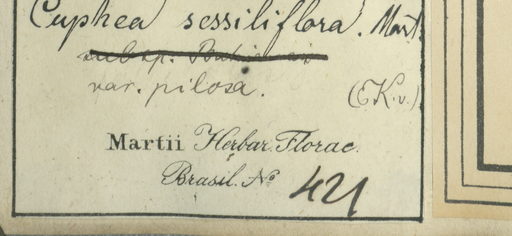 Cuphea sessiliflora. Mart.
subsp.
var. pilosa.
(E K.v.)
Martii Herbar. Florae
Brasil. No 421